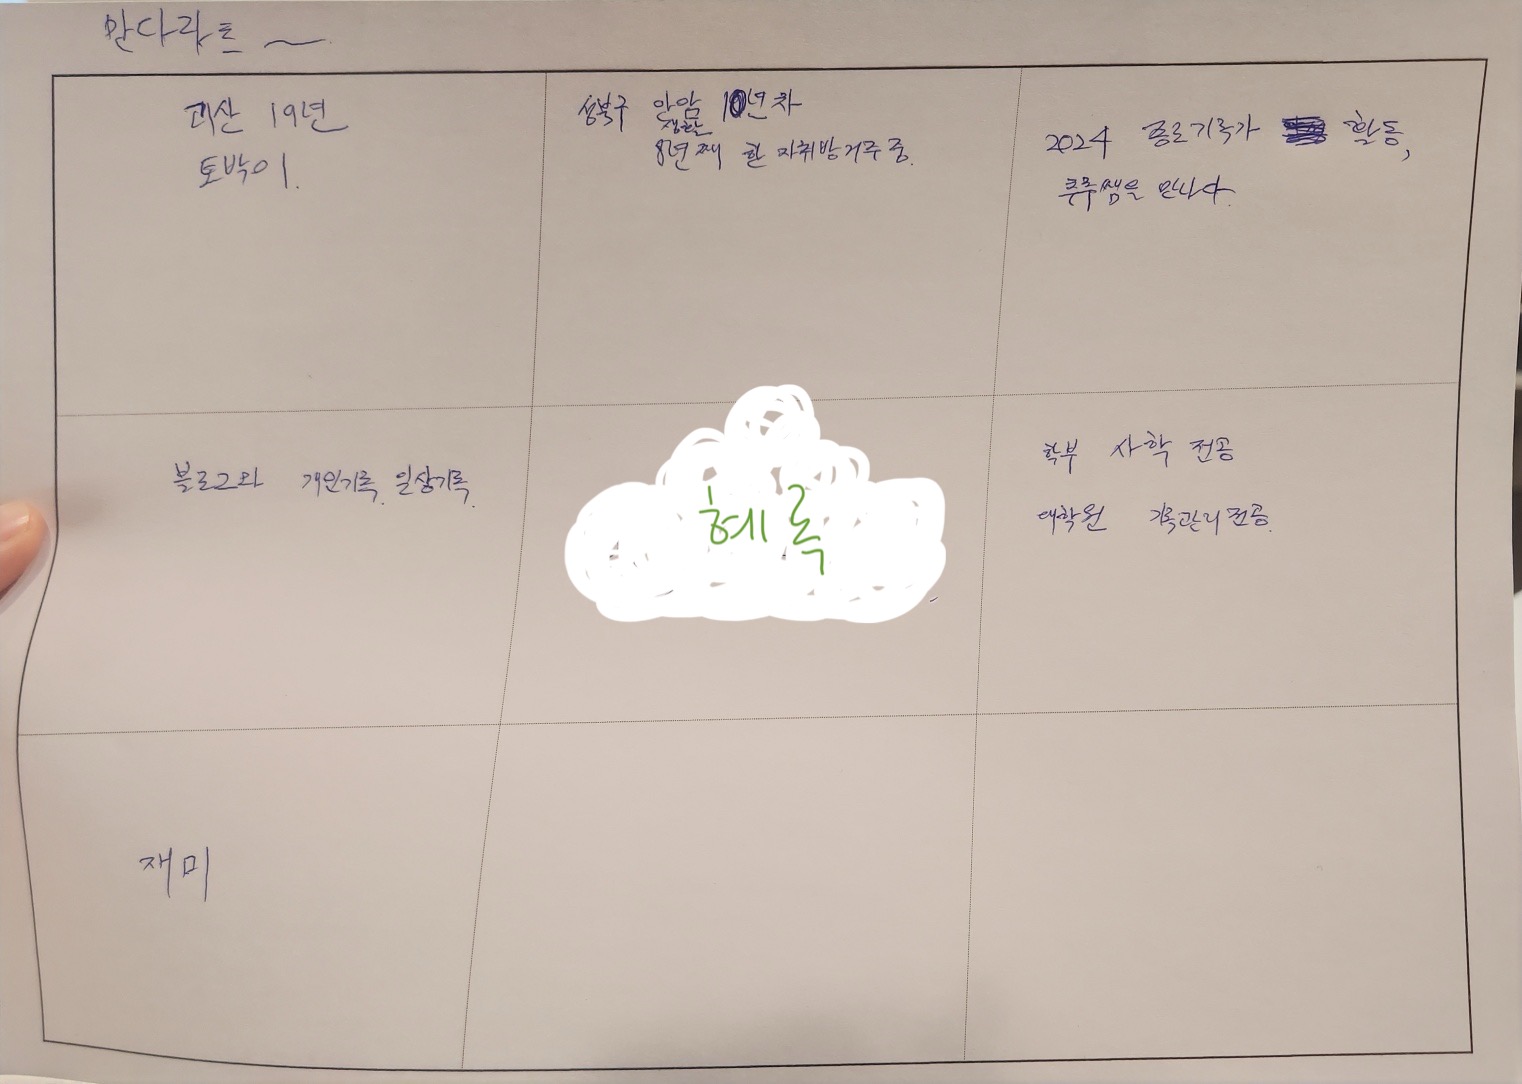 만다라트 ~
괴산 19년
토박이.
성북구 안암 10년차
생활
8년째 한 자취방 거주 중.
2024 종로기록가 활동,
쌤을 만나다.
블로그와 개인기록, 일상기록.
혜록
학부 사학 전공
대학원 기록관리전공.
재미